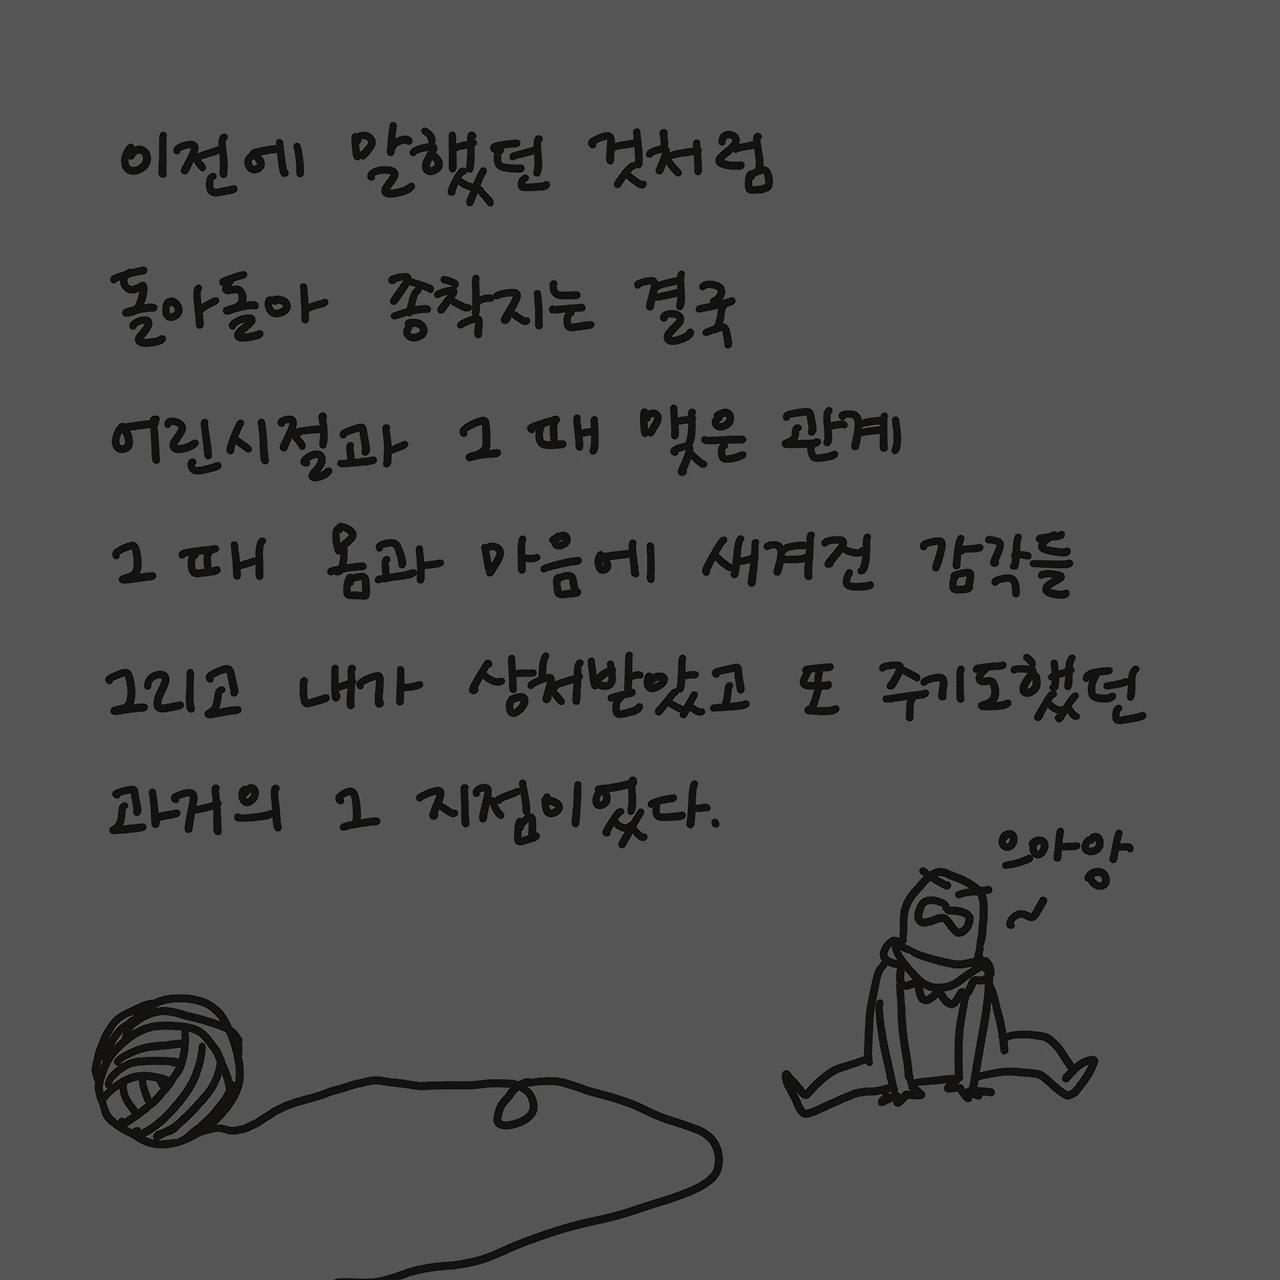 이전에 말했던 것처럼
돌아돌아 종착지는 결국
어린시절과 그 때 맺은 관계
그 때 몸과 마음에 새겨진 감각들
그리고 내가 상처받았고 또 주기도했던
과거의 그 지점이었다.
으아앙
~